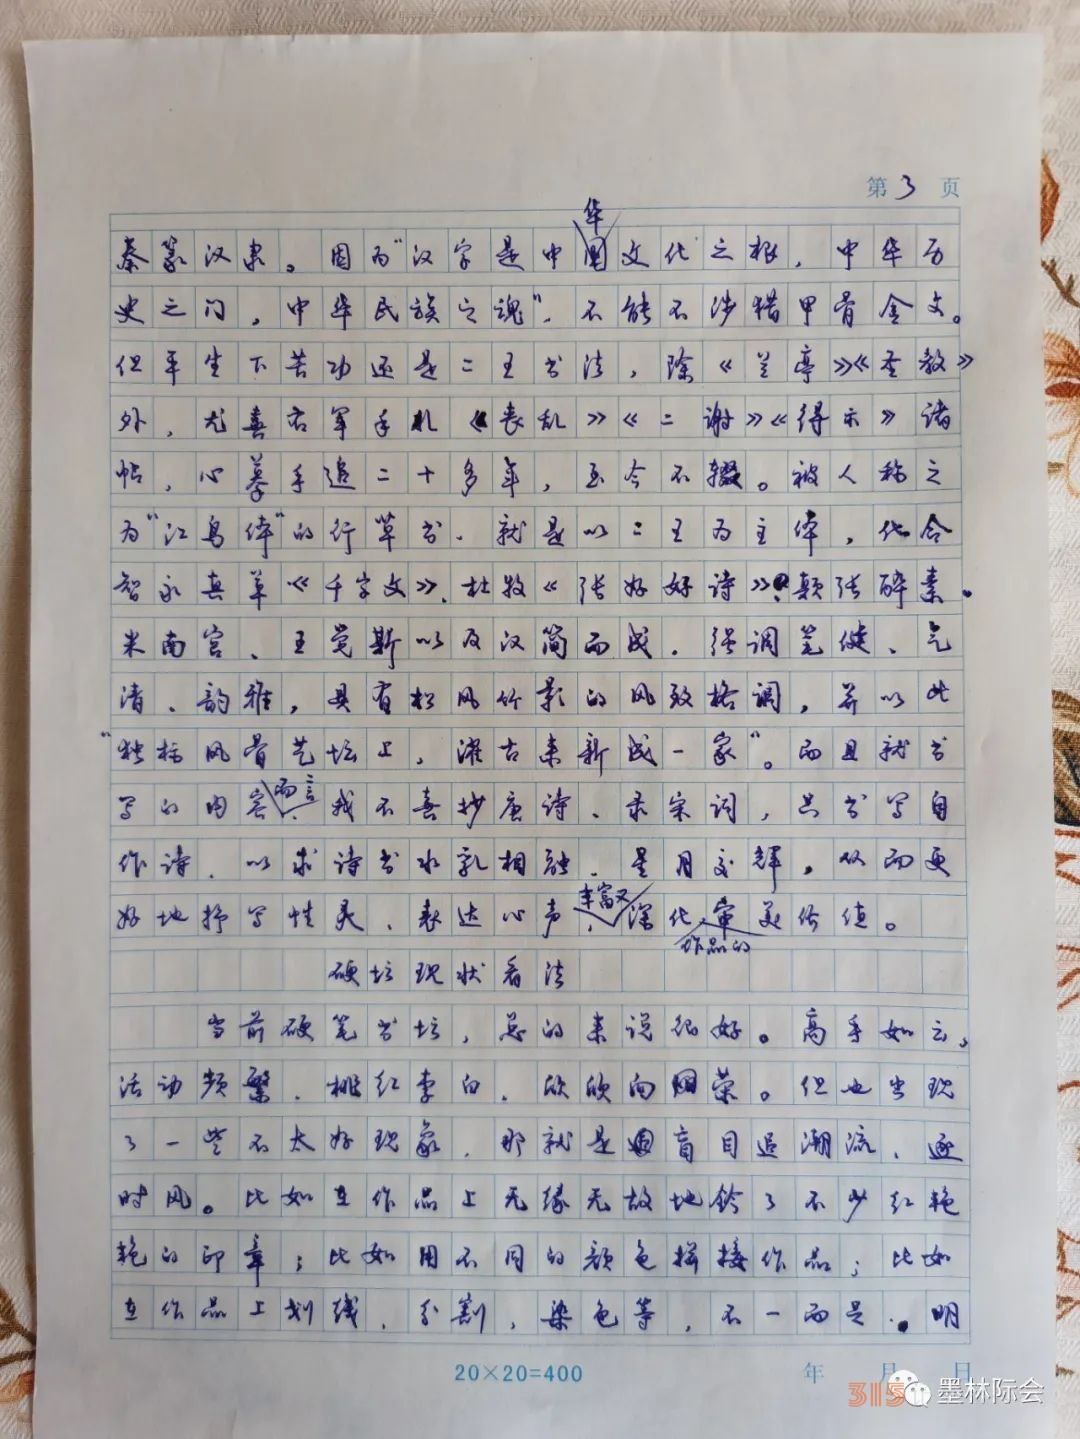 第3页
华
秦篆汉隶。因为“汉字是中国文化之根，中华历
史之门，中华民族之魂”，不能不涉猎甲骨金文。
但平生下苦功还是二王书法，除《兰亭》《圣教》
外，尤喜右军手札《丧乱》《二谢》《得示》诸
帖，心摹手追二十多年，至今不辍。被人称之
为“江鸟体”的行草书，就是以二王为主体，化合
智永真草《千字文》、杜牧《张好好诗》、颠张醉素、
米南宫、王觉斯以及汉简而成。强调笔健、气
清、韵雅，具有松风竹影的风致格调，并以此
“独标风骨艺坛上，濯古来新成一家”。而且就书
写的内容而言，我不喜抄唐诗、录宋词，只书写自
作诗，以求诗书水乳相融，星月交辉，从而更
好地抒写性灵、表达心声，丰富又深化作品的审美价值。
硬坛现状看法
当前硬笔书坛，总的来说很好。高手如云，
活动频繁，桃红李白，欣欣向荣。但也出现
了一些不太好现象，那就是盲目追潮流、逐
时风。比如在作品上无缘无故地钤了不少红艳
艳的印章；比如用不同的颜色拼接作品；比如
在作品上划线，分割，染色等，不一而足。明
20×20=400
年 月 日
315
墨林际会